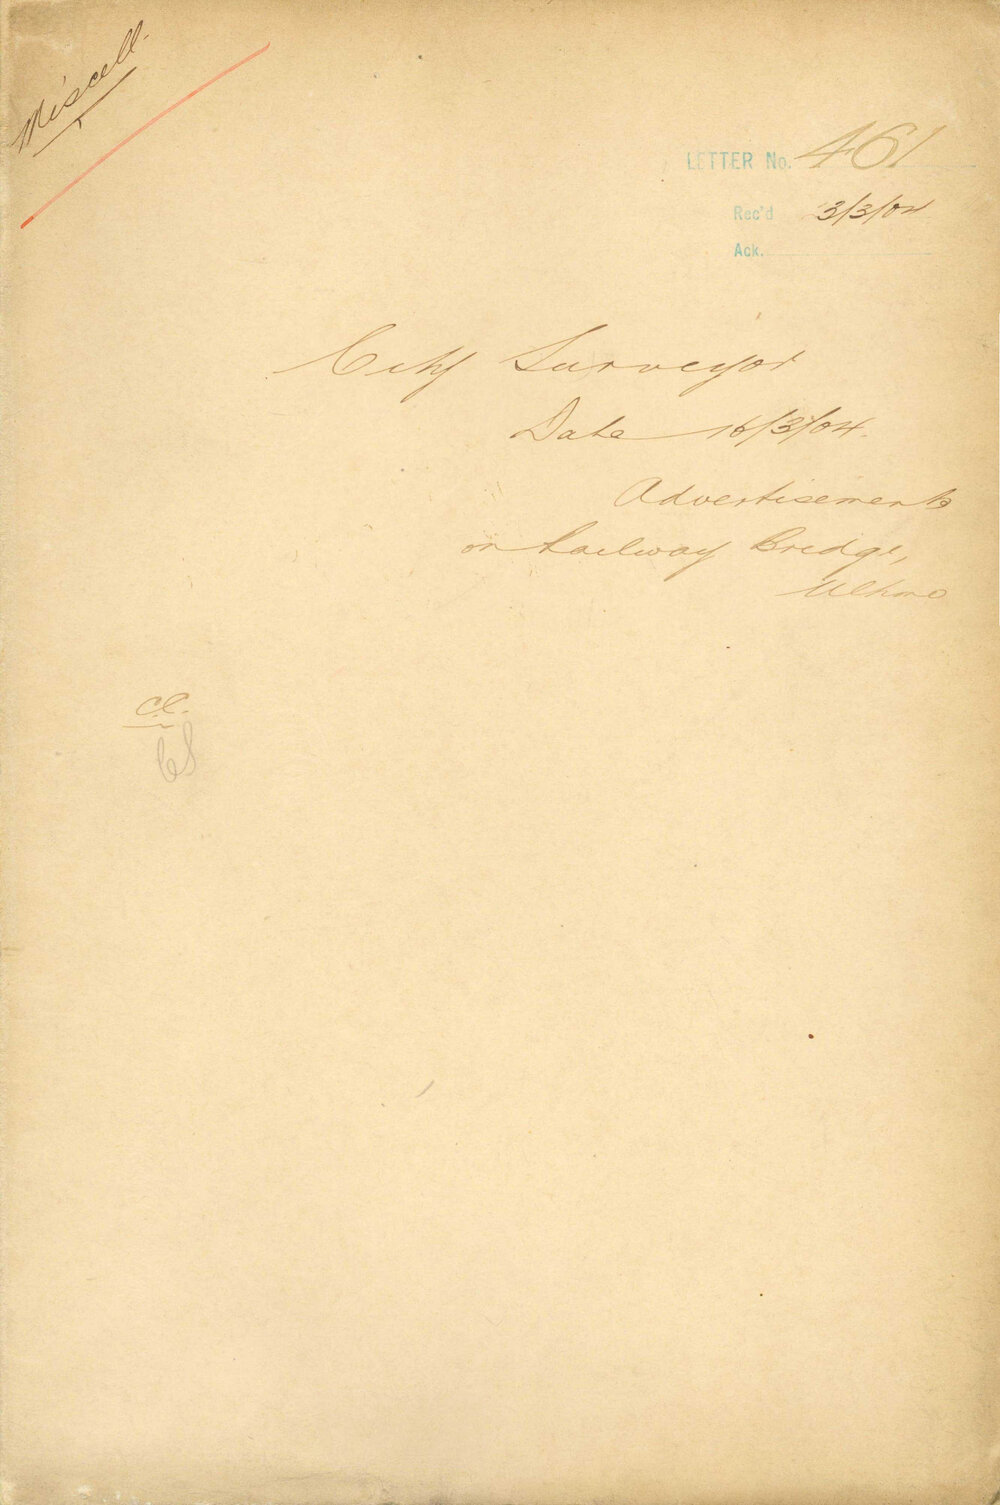 Miscell.
LETTER No. 461
Rec'd 3/3/04
Ack.
City Surveyor
Date 16/3/04.
Advertisements
on Railway Bridge,
Ultimo
C.C.
CS